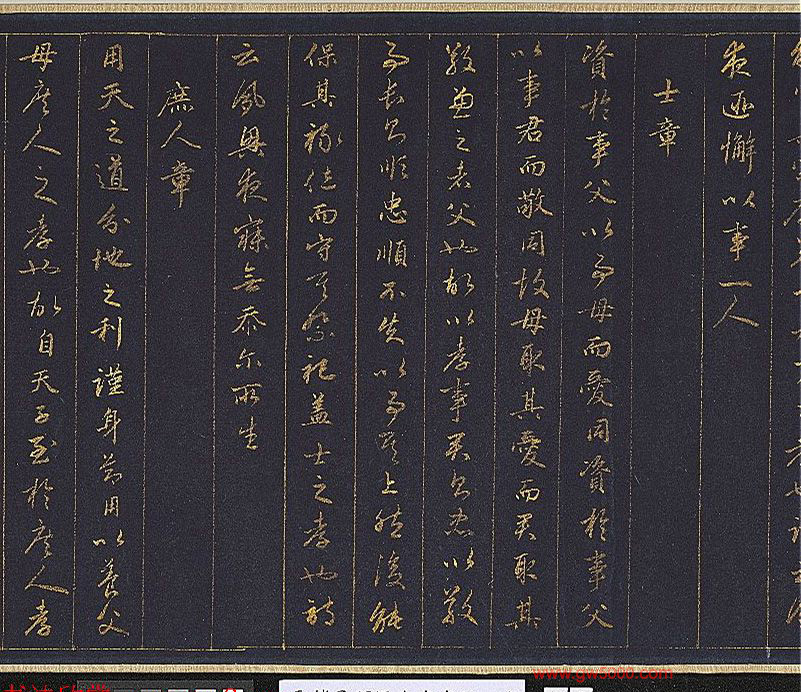 夜匪懈以事一人
士章
資於事父以事母而愛同資於事父
以事君而敬同故母取其愛而君取其
敬兼之者父也故以孝事君則忠以敬
事長則順忠順不失以事其上然後能
保其祿位而守其祭祀蓋士之孝也詩
云夙興夜寐無忝尔所生
庶人章
用天之道分地之利謹身節用以養父
母庶人之孝也故自天子至於庶人孝
www.gw5000.com